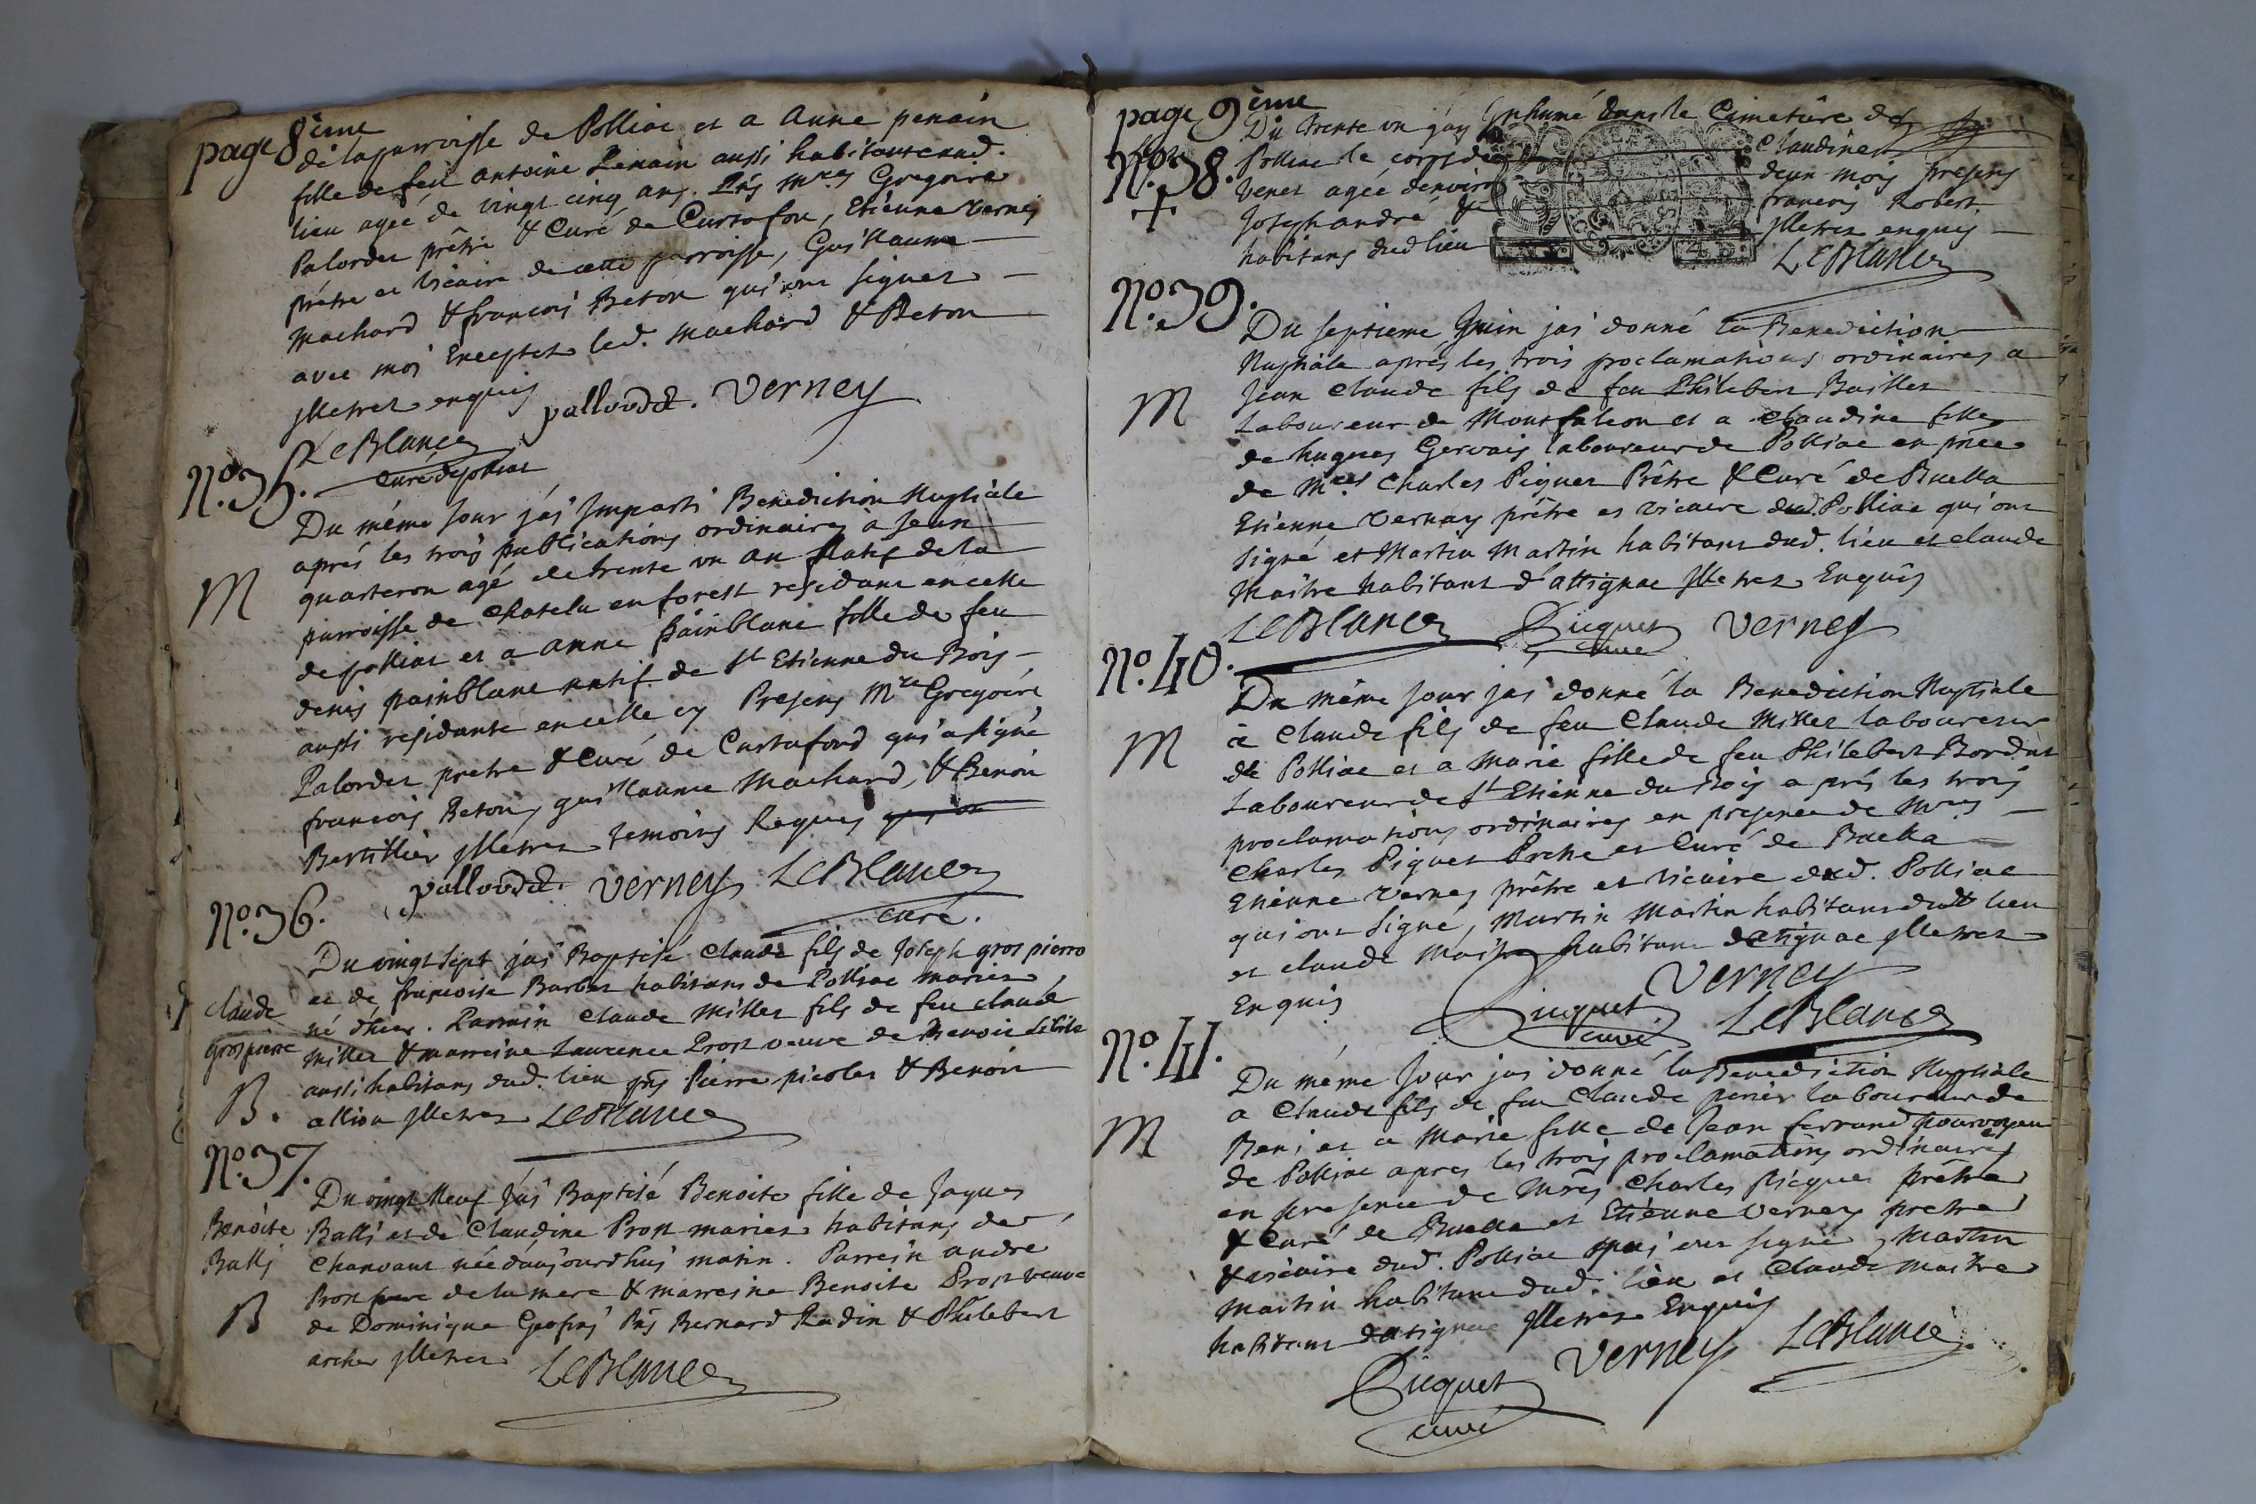 page 8ème
de la parroisse de Polliac et a anne penain
fille de feu antoine Penain aussi habitante aud.
lieu agée de vingt cinq ans. Pns mres Gregoire
Palordet prêtre & Curé de Curtafon, Etienne Verney
prêtre et vicaire de cette parroisse, Guillaume
Machard & françois Beton qui ont signer
avec moi Exceptez led. machard & Beton
jlletrez enquis
pallordet. Verney
LeBlanc
Curé de polliat
No. 35.
M
Du même jour jái Imparti Benediction Nuptiale
aprés les trois publications ordinaires a Jean
quarteron agé de trente un an natif de la
parroisse de Chatelu en forest residant en celle
de polliat et a anne painblanc fille de feu
denis painblanc natif de St Etienne du Bois
aussi residante en celle cy Presens Mre Gregoire
Palordet pretre & Curé de Curtafond qui a signé
françois Beton, guillaume Machard, & Benoit
Bertillier jlletrez temoins Requis
pallordet. Verney LeBlanc
curé.
No. 36.
claude
grospierre
B.
Du vingt sept jai Baptisé Claude fils de Joseph gros pierre
et de françoise Barbet habitans de Polliac mariez
né d'hier. Parrain Claude Millet fils de feu claude
Millet & marreine Laurence Prost veuve de Benoit
aussi habitans dud. lieu pns Pierre picolet & Benoit
allion jlletrez LeBlanc
No. 37.
Benoite
Balli
B
Du vingt Neuf Jái Baptisé Benoite fille de Jaques
Balli et de Claudine Prost mariez habitans de
Chanvant née d'aujourdhui matin. Parrein andré
Prost frere de la mere & marreine Benoite Prost veuve
de Dominique Geofrai Pns Bernard Radin & Philebert
archer jlletrez LeBlanc
page 9ème
No. 38.
Du trente un j'ay Inhumé dans le Cimetière de
Polliac le corps de Claudine
Venet agée denviron deux mois presens
Joseph andré & francois Robert
habitans dud lieu jlletrez enquis
LeBlanc
No. 39.
M
Du septieme Juin jai donné la Benediction
Nuptiale aprés les trois proclamations ordinaires a
Jean Claude fils de feu Philebert Baillet
Laboureur de Montfalcon et a Claudine fille
de hugues Gervais laboureur de Polliac en pnce
de Mres Charles Piquet Prêtre & Curé de Buella
Etienne Vernay prêtre et vicaire dud. Polliac qui ont
signé et Martin Martin habitant dud. lieu et claude
Maitre habitant d'attignac jlletrez Enquis
LeBlanc Picquet Verney
curé
No. 40.
M
Du même jour jai donné la Benediction Nuptiale
a Claude fils de feu Claude Millet laboureur
de Polliac et a Marie fille de feu Philebert Bordat
Laboureur de St Etienne du Bois a prés les trois
proclamations ordinaires en presence de Mres
Charles Piquet Pretre et Curé de Buella
Etienne Verney prêtre et vicaire dud. Polliac
qui ont signé, Martin Martin habitant dud lieu
et claude Maitre habitant datignac jlletrez
Enquis
Verney
Picquet LeBlanc
curé
No. 41.
M
Du méme jour jai donné la Benediction Nuptiale
a Claude fils de feu Claude perier laboureur de
Beni et a Marie fille de Jean ferrand
de Polliac apres les trois proclamations ordinaires
en presence de Mres Charles Picquet prêtre
& Curé de Buella et Etienne Verney pretre
& vicaire dud. Polliac qui ont signé, Martin
Martin habitant dud. lieu et Claude Maitre
habitant datignac jlletrez Enquis
Picquet Verney LeBlanc
curé